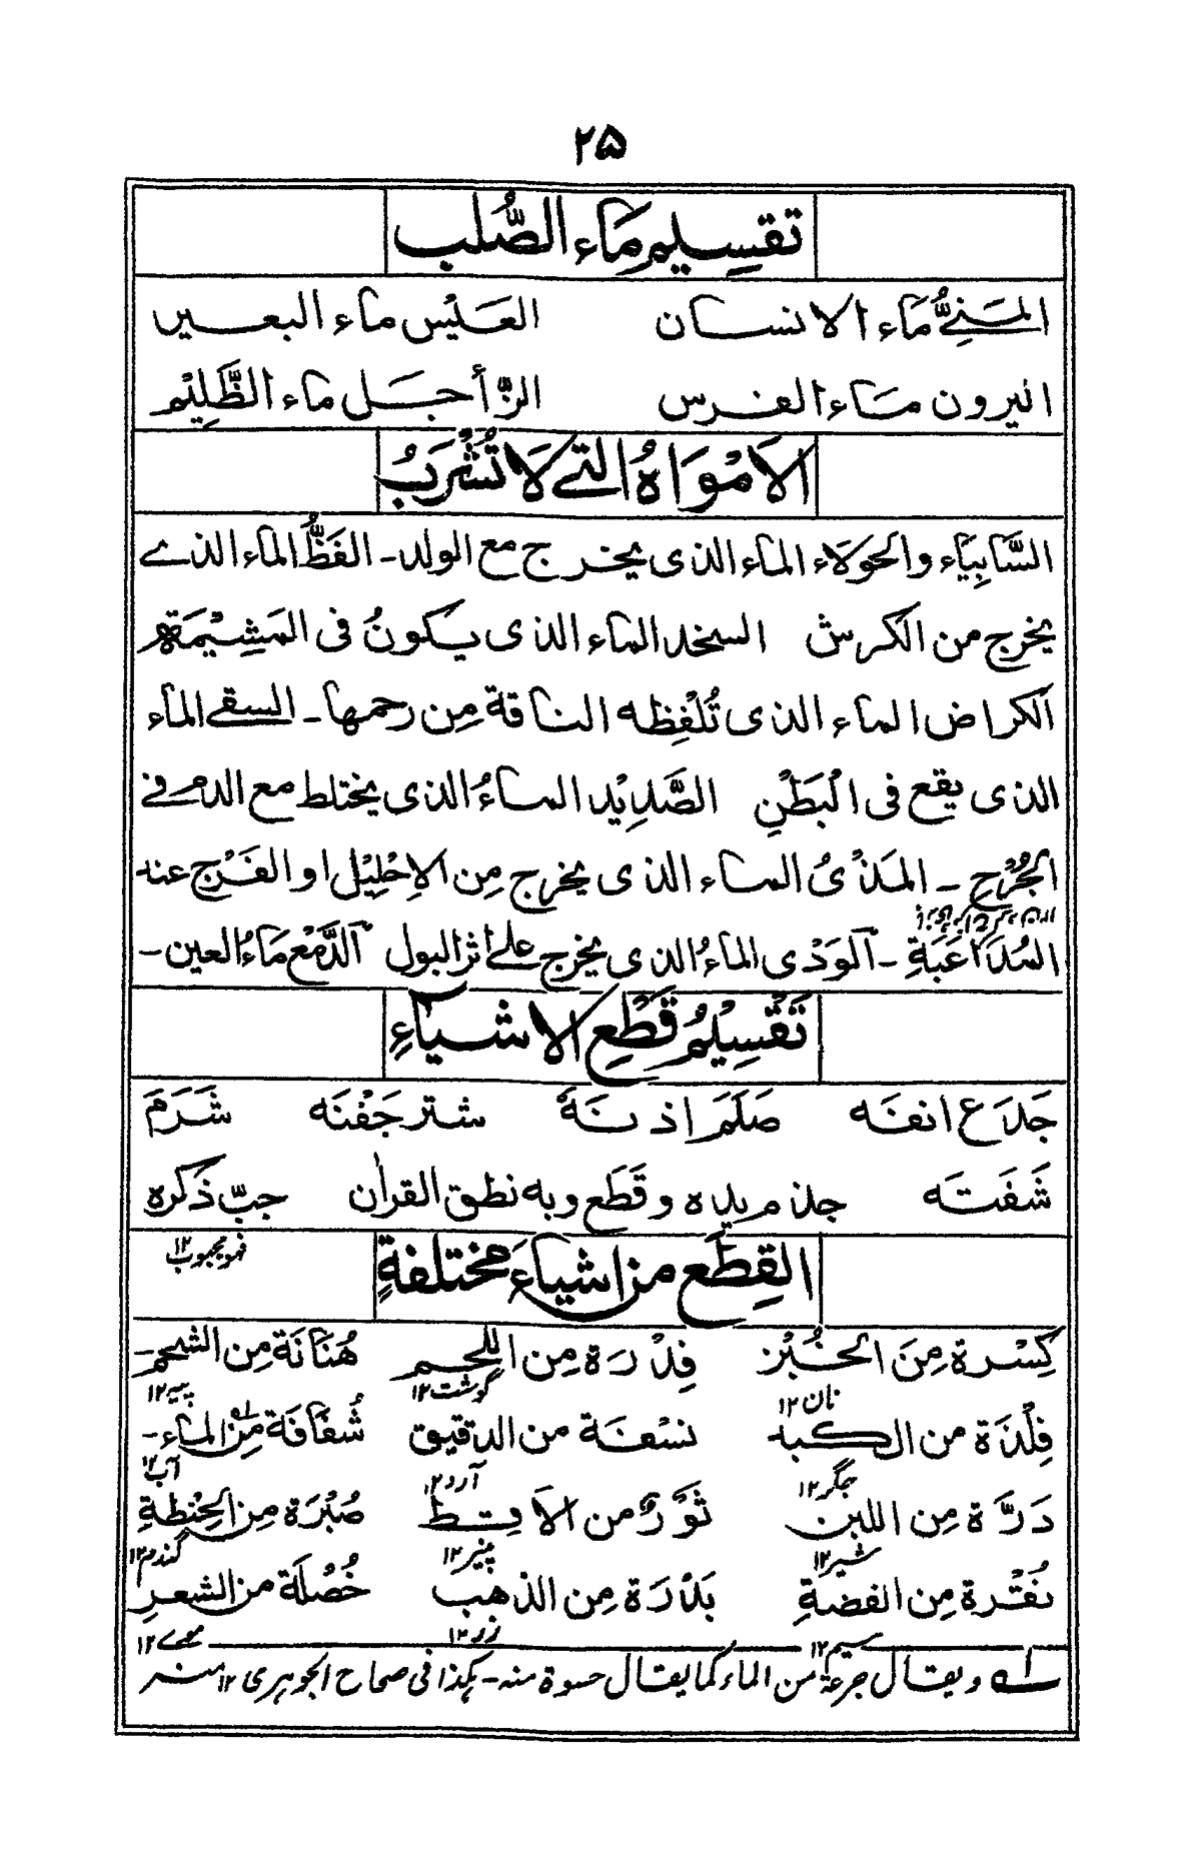 ۲۵
تقسیم ماء الصُّلب
المَنِیُّ مَاء الانسان العَیْس ماء البعیر
الیرون مَاء الفرس الزَّأجَل ماء الظَّلِیْم
الاَمْوَاہُ التی لَا تُشْرَبُ
السَّابِیَاء والحَوَلَاء الماء الذی یخرج مع الولد۔ الفَظُّ الماء الذے
یخرج من الکرش السخد الماء الذی یکونُ فی المَشِیْمَة
الکراض الماء الذی تُلْفِظه الناقة مِن رحمها۔ السقی الماء
الذی یقع فی الْبَطْنِ الصَّدِیْد الماءُ الذی یختلط مع الدم فی
الجُرْحِ ۔ المَذْیُ الماء الذی یخرج مِن الاِحْلِیْل او الفَرْج عند
المُدَاعَبَةِ ۔ اَلوَدْی الماءُ الذی یخرج علی اثر البول اَلدَّمْع مَاءُ العین۔
تَقْسِیْمُ قَطْعِ الاشیَاءِ
جَدَعَ انفَه صَلَمَ اذنَهٗ شتر جَفْنَه شَرَمَ
شَفَتَه جذم یده وقَطَع وبه نطق القراٰن جبّ ذکره
فهو مجبوب ۱۲
القِطَع من اشیاءَ مختلفةٍ
کِسْرة مِنَ الخُبْز فِدْرَة مِن اللحم هُنَانَة مِن الشحم۔
نان ۱۲ گوشت ۱۲ پیه ۱۲
فِلْذَة من الکبد نسْفَة من الدقیق شُفَافَة مِنْ الماء۔
جگر ۱۲ آرد ۱۲ آب ۱۲
دَرَّة مِن اللبن ثَوْرٌ من الاَقِط صُبْرَة مِن الحِنْطةِ
شیر ۱۲ پنیر ۱۲ گندم ۱۲
نُقْرة مِن الفضةِ بَدْرَة مِن الذهب خُصْلَة من الشعرِ
سیم ۱۲ زر ۱۲ موے ۱۲
لے ویقال جرعة من الماء کما یقال حسوة منه۔ ہکذا فی صحاح الجوہری ۱۲ منہ